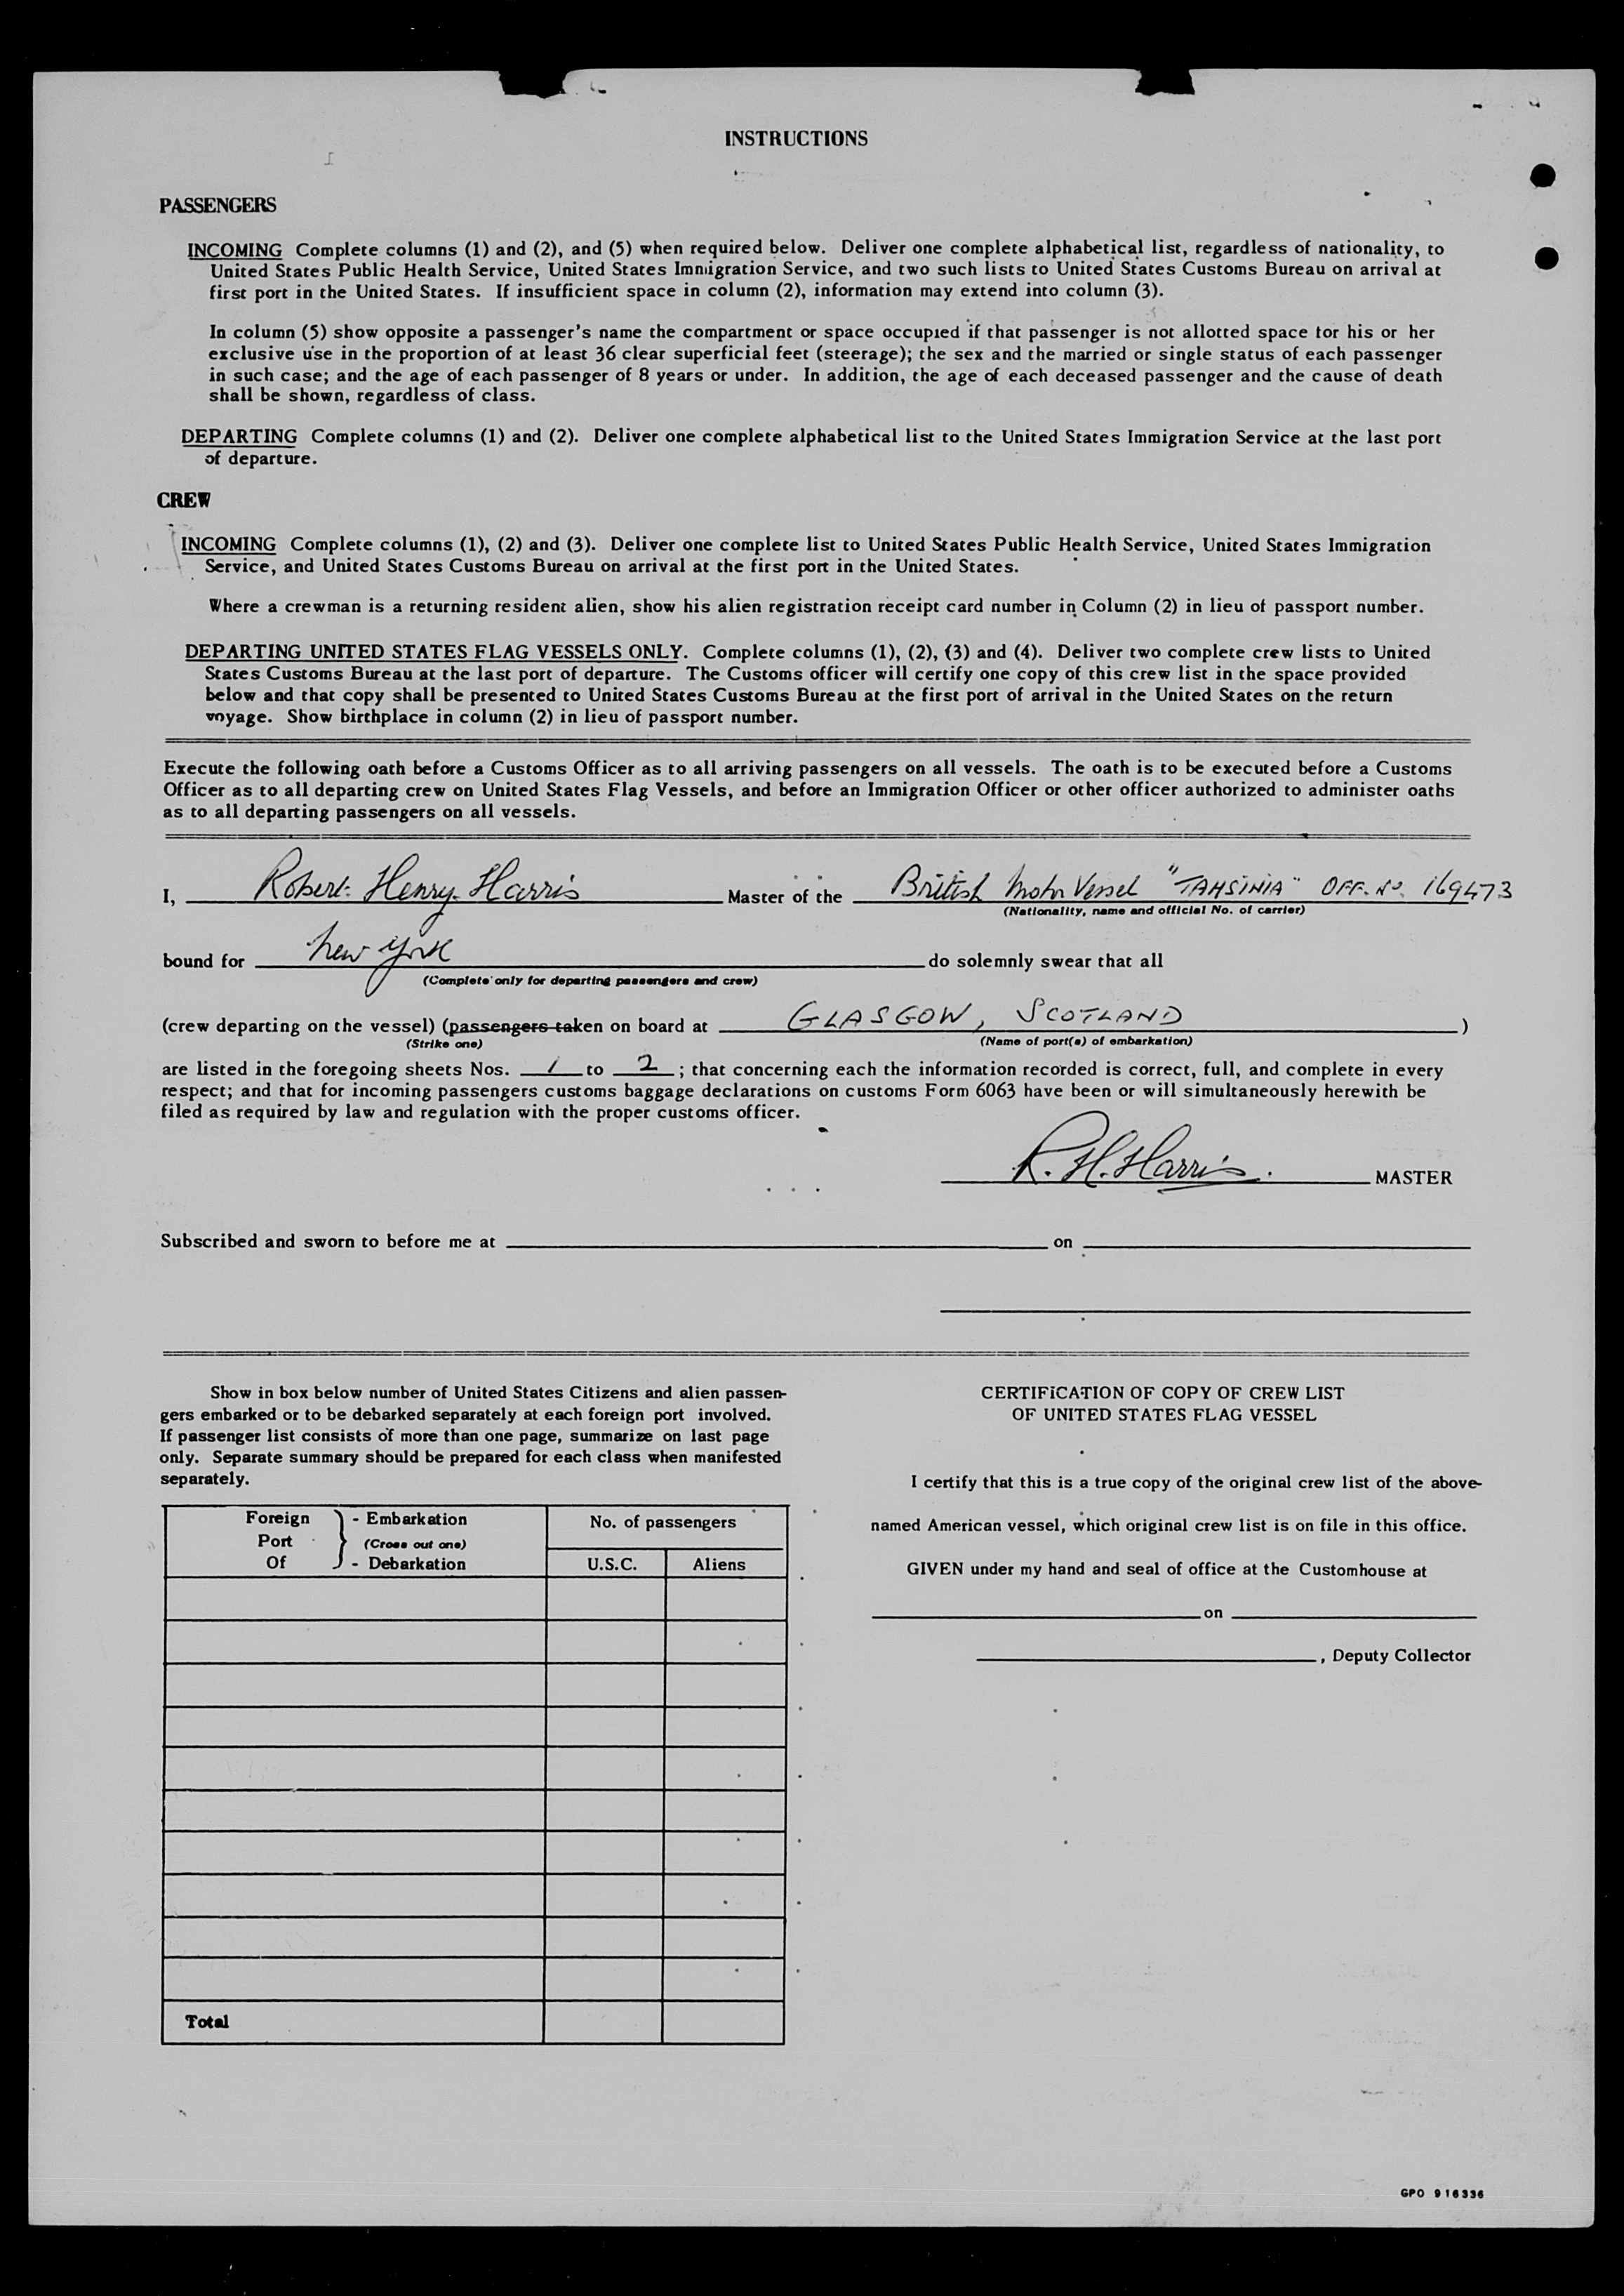 INSTRUCTIONS
PASSENGERS
INCOMING Complete columns (1) and (2), and (5) when required below. Deliver one complete alphabetical list, regardless of nationality, to
United States Public Health Service, United States Immigration Service, and two such lists to United States Customs Bureau on arrival at
first port in the United States. If insufficient space in column (2), information may extend into column (3).
In column (5) show opposite a passenger's name the compartment or space occupied if that passenger is not allotted space for his or her
exclusive use in the proportion of at least 36 clear superficial feet (steerage); the sex and the married or single status of each passenger
in such case; and the age of each passenger of 8 years or under. In addition, the age of each deceased passenger and the cause of death
shall be shown, regardless of class.
DEPARTING Complete columns (1) and (2). Deliver one complete alphabetical list to the United States Immigration Service at the last port
of departure.
CREW
INCOMING Complete columns (1), (2) and (3). Deliver one complete list to United States Public Health Service, United States Immigration
Service, and United States Customs Bureau on arrival at the first port in the United States.
Where a crewman is a returning resident alien, show his alien registration receipt card number in Column (2) in lieu of passport number.
DEPARTING UNITED STATES FLAG VESSELS ONLY. Complete columns (1), (2), (3) and (4). Deliver two complete crew lists to United
States Customs Bureau at the last port of departure. The Customs officer will certify one copy of this crew list in the space provided
below and that copy shall be presented to United States Customs Bureau at the first port of arrival in the United States on the return
voyage. Show birthplace in column (2) in lieu of passport number.
Execute the following oath before a Customs Officer as to all arriving passengers on all vessels. The oath is to be executed before a Customs
Officer as to all departing crew on United States Flag Vessels, and before an Immigration Officer or other officer authorized to administer oaths
as to all departing passengers on all vessels.
I, Robert Henry Harris Master of the British Motor Vessel "TAHSINIA" OFF. No. 169473
(Nationality, name and official No. of carrier)
bound for New York do solemnly swear that all
(Complete only for departing passengers and crew)
(crew departing on the vessel) (passengers taken on board at GLASGOW, SCOTLAND )
(Strike one) (Name of port(s) of embarkation)
are listed in the foregoing sheets Nos. 1 to 2 ; that concerning each the information recorded is correct, full, and complete in every
respect; and that for incoming passengers customs baggage declarations on customs Form 6063 have been or will simultaneously herewith be
filed as required by law and regulation with the proper customs officer.
R. H. Harris. MASTER
Subscribed and sworn to before me at on
Show in box below number of United States Citizens and alien passen-
gers embarked or to be debarked separately at each foreign port involved.
If passenger list consists of more than one page, summarize on last page
only. Separate summary should be prepared for each class when manifested
separately.
Foreign Port Of } - Embarkation
(Cross out one)
- Debarkation
No. of passengers
U.S.C. Aliens
Total
CERTIFICATION OF COPY OF CREW LIST
OF UNITED STATES FLAG VESSEL
I certify that this is a true copy of the original crew list of the above-
named American vessel, which original crew list is on file in this office.
GIVEN under my hand and seal of office at the Customhouse at
on
, Deputy Collector
GPO 916336